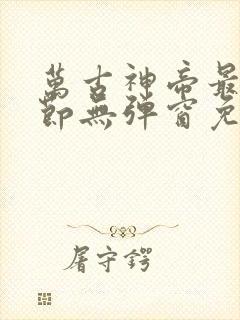 萬古神帝最
節無彈窗免
屠守鍔